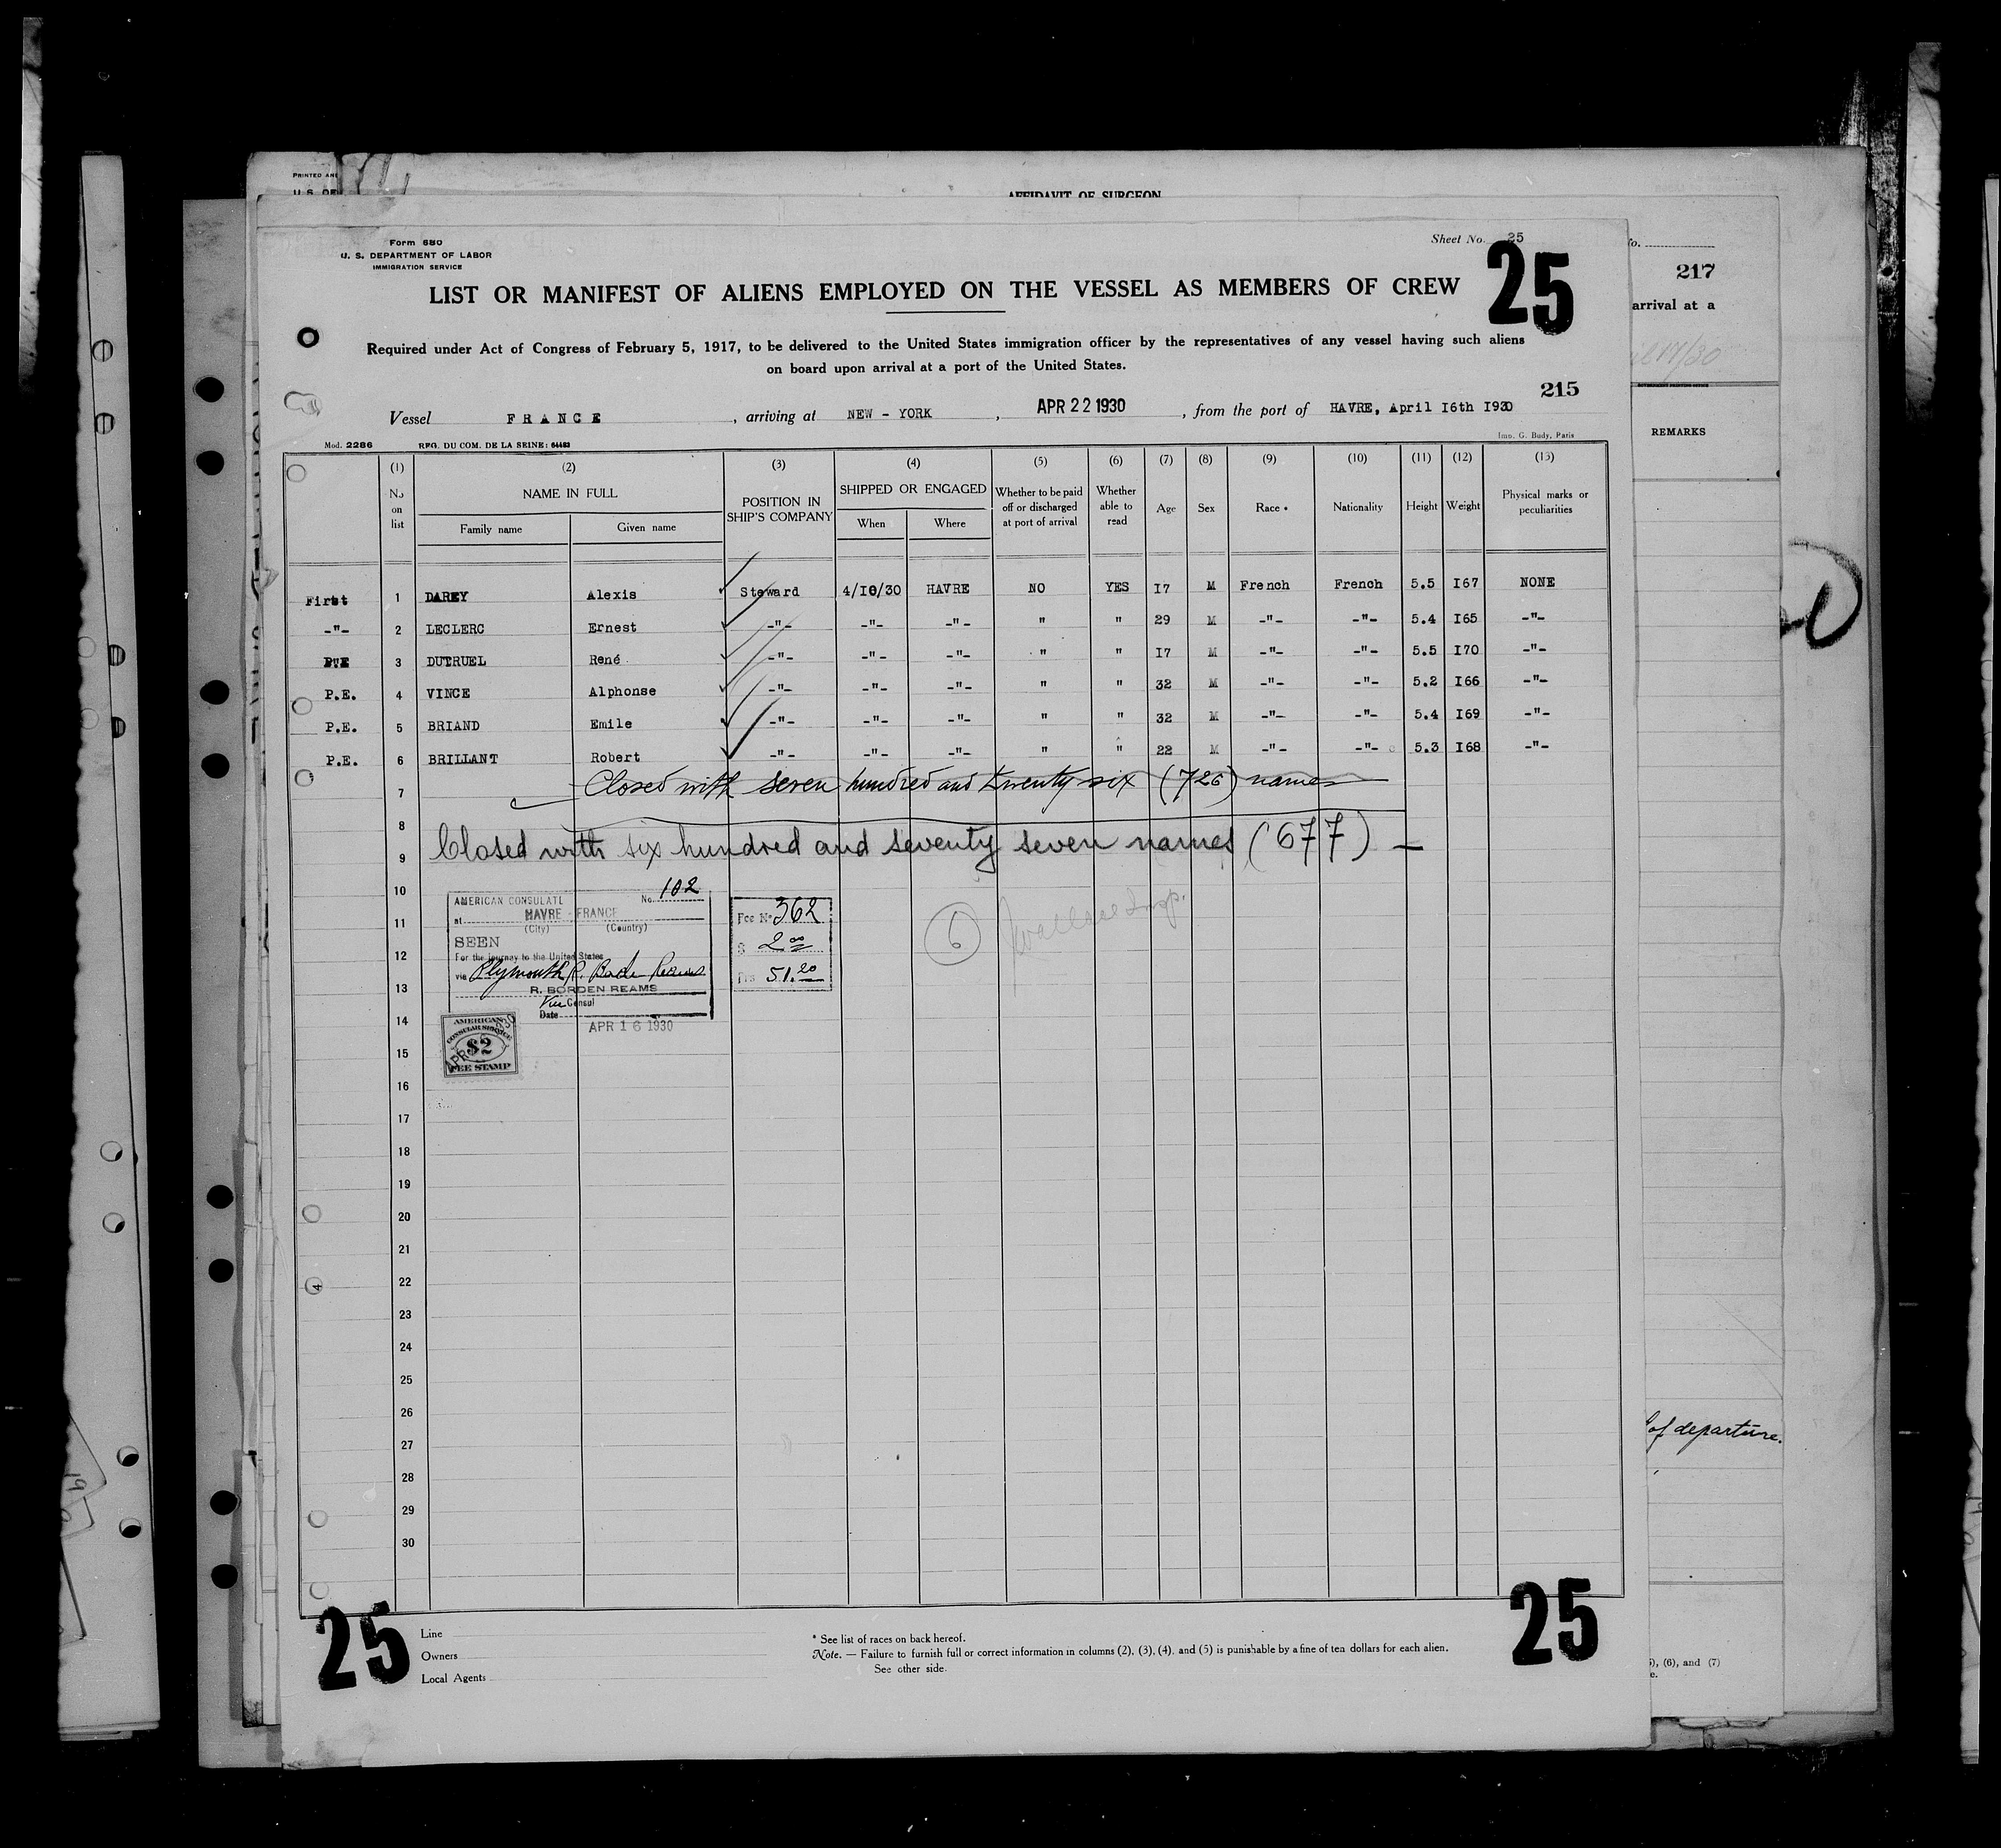 PRINTED AN
U. S. DE
AFFIDAVIT OF SURGEON
Form 680
U. S. DEPARTMENT OF LABOR
IMMIGRATION SERVICE
Sheet No. 25
25
LIST OR MANIFEST OF ALIENS EMPLOYED ON THE VESSEL AS MEMBERS OF CREW
Required under Act of Congress of February 5, 1917, to be delivered to the United States immigration officer by the representatives of any vessel having such aliens
on board upon arrival at a port of the United States.
215
Vessel FRANCE, arriving at NEW - YORK, APR 22 1930, from the port of HAVRE, April I6th I930
Mod. 2286 REG. DU COM. DE LA SEINE: 64483 Imp. G. Budy, Paris
(1) (2) (3) (4) (5) (6) (7) (8) (9) (10) (11) (12) (13)
No on list NAME IN FULL Family name Given name POSITION IN SHIP'S COMPANY SHIPPED OR ENGAGED When Where Whether to be paid off or discharged at port of arrival Whether able to read Age Sex Race * Nationality Height Weight Physical marks or peculiarities
First 1 DAREY Alexis Steward 4/I0/30 HAVRE NO YES I7 M French French 5.5 I67 NONE
-"- 2 LECLERC Ernest -"- -"- -"- " " 29 M -"- -"- 5.4 I65 -"-
3 DUTRUEL René -"- -"- -"- " " I7 M -"- -"- 5.5 I70 -"-
P.E. 4 VINCE Alphonse -"- -"- -"- " " 32 M -"- -"- 5.2 I66 -"-
P.E. 5 BRIAND Emile -"- -"- -"- " " 32 M -"- -"- 5.4 I69 -"-
P.E. 6 BRILLANT Robert -"- -"- -"- " " 22 M -"- -"- 5.3 I68 -"-
7 Closed with seven hundred and twenty six (726) names
8
9 Closed with six hundred and seventy seven names (677) —
10
11
12
13
14
15
16
17
18
19
20
21
22
23
24
25
26
27
28
29
30
AMERICAN CONSULATE No. 102
at HAVRE - FRANCE
(City) (Country)
SEEN
For the journey to the United States
via Plymouth R. Borden Reams
R. BORDEN REAMS
Vice Consul
Date
APR 16 1930
Fee No 362
$ 2.00
Frs 51.20
AMERICAN
CONSULAR SERVICE
$2
FEE STAMP
6 Wallace Insp.
25
Line
Owners
Local Agents
* See list of races on back hereof.
Note. — Failure to furnish full or correct information in columns (2), (3), (4), and (5) is punishable by a fine of ten dollars for each alien.
See other side.
25
217
arrival at a
REMARKS
of departure.
), (6), and (7)